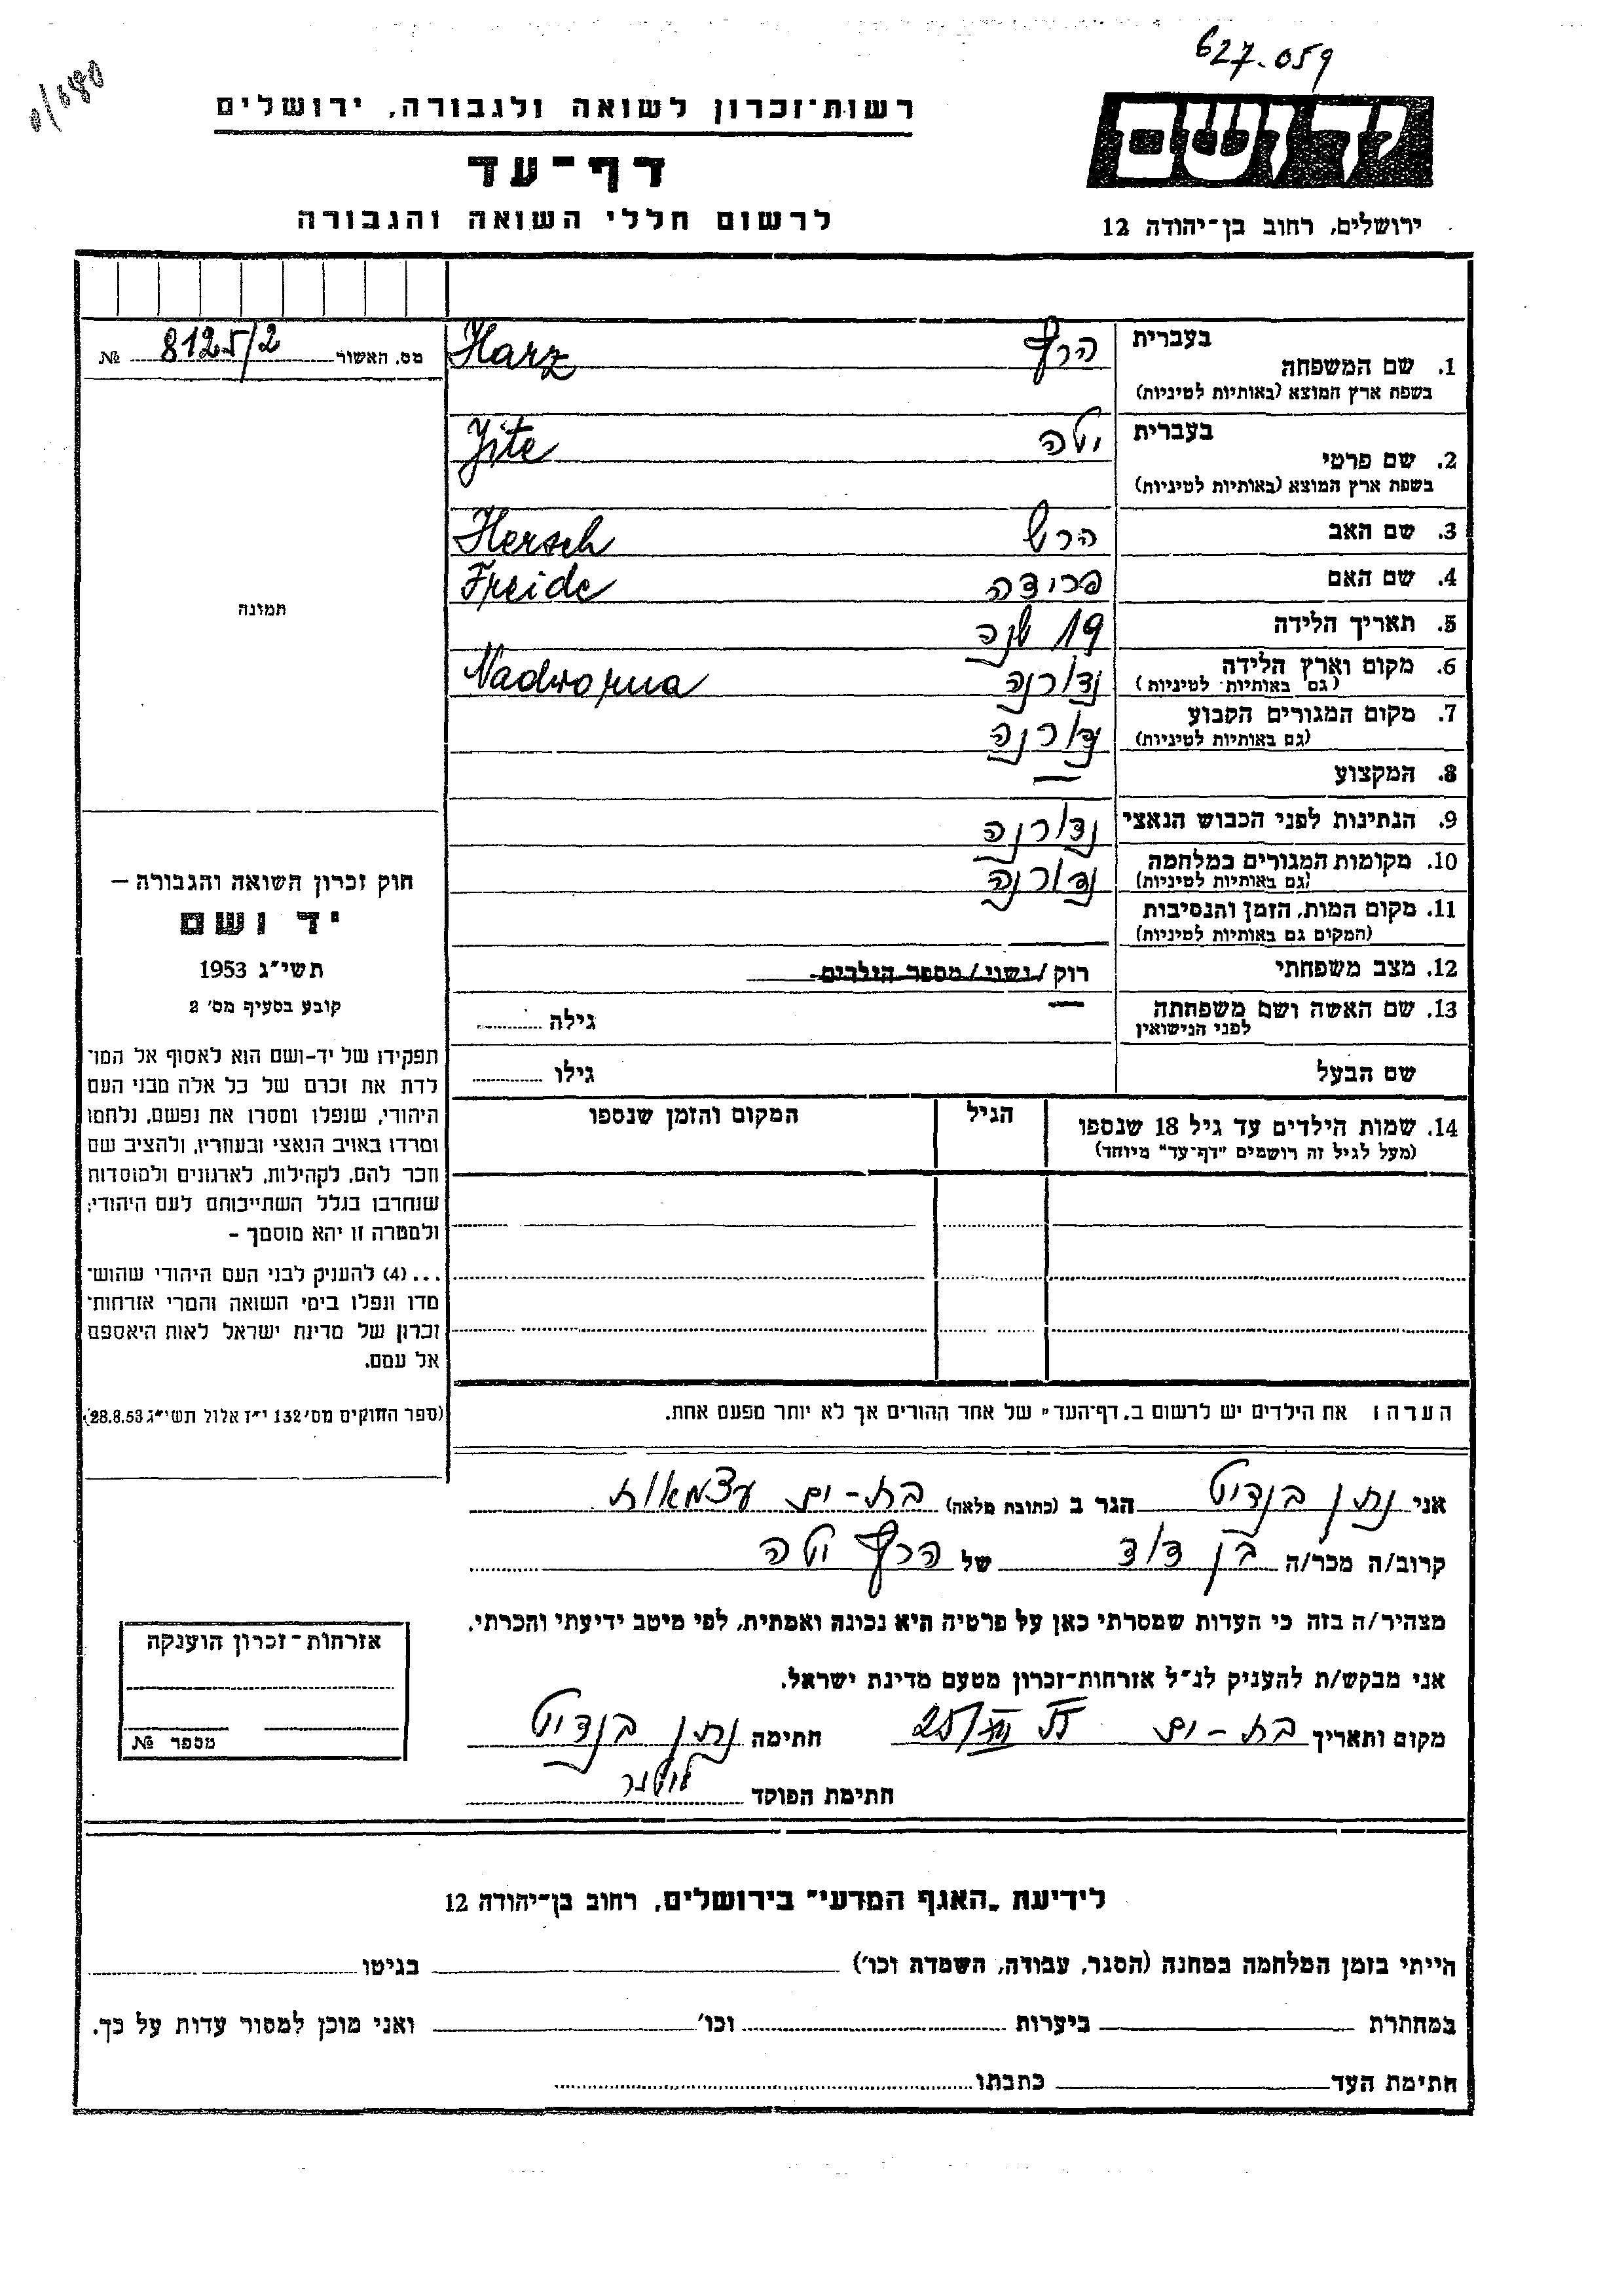 627.059
רשות־זכרון לשואה ולגבורה, ירושלים
דף־עד
לרשום חללי השואה והגבורה
ידושם
ירושלים, רחוב בן־יהודה 12
מס. האשור 8125/2 №
תמונה
חוק זכרון השואה והגבורה –
יד ושם
תשי״ג 1953
קובע בסעיף מס׳ 2
תפקידו של יד-ושם הוא לאסוף אל המו־
לדת את זכרם של כל אלה מבני העם
היהודי, שנפלו ומסרו את נפשם, נלחמו
ומרדו באויב הנאצי ובעוזריו, ולהציב שם
וזכר להם, לקהילות, לארגונים ולמוסדות
שנחרבו בגלל השתייכותם לעם היהודי;
ולמטרה זו יהא מוסמך –
...(4) להעניק לבני העם היהודי שהוש־
מדו ונפלו בימי השואה והמרי אזרחות־
זכרון של מדינת ישראל לאות היאספם
אל עמם.
(ספר החוקים מס׳ 132 י״ז אלול תשי״ג 28.8.53)
בעברית
1. שם המשפחה הרץ Harz
בשפת ארץ המוצא (באותיות לטיניות)
בעברית
2. שם פרטי יטה Jite
בשפת ארץ המוצא (באותיות לטיניות)
3. שם האב הרש Hersch
4. שם האם פרידה Freide
5. תאריך הלידה 19 שנה
6. מקום וארץ הלידה נדורנה Nadworna
(גם באותיות לטיניות)
7. מקום המגורים הקבוע נדורנה
(גם באותיות לטיניות)
8. המקצוע —
9. הנתינות לפני הכבוש הנאצי נדורנה
10. מקומות המגורים במלחמה נדורנה
(גם באותיות לטיניות)
11. מקום המות, הזמן והנסיבות
(המקום גם באותיות לטיניות)
12. מצב משפחתי רוק / נשוי / מספר הילדים
13. שם האשה ושם משפחתה — גילה
לפני הנישואין
שם הבעל גילו
14. שמות הילדים עד גיל 18 שנספו הגיל המקום והזמן שנספו
(מעל לגיל זה רושמים "דף־עד" מיוחד)
הערה: את הילדים יש לרשום ב„דף־העד" של אחד ההורים אך לא יותר מפעם אחת.
אני נתן בנדיט הגר ב (כתובת מלאה) בת-ים עצמאות
קרוב/ה מכר/ה בן דוד של הרץ יטה
מצהיר/ה בזה כי העדות שמסרתי כאן על פרטיה היא נכונה ואמתית, לפי מיטב ידיעתי והכרתי.
אני מבקש/ת להעניק לנ״ל אזרחות־זכרון מטעם מדינת ישראל.
מקום ותאריך בת-ים 25/XII חתימה נתן בנדיט
חתימת הפוקד
אזרחות־זכרון הוענקה
מספר №
לידיעת „האגף המדעי" בירושלים, רחוב בן־יהודה 12
הייתי בזמן המלחמה במחנה (הסגר, עבודה, השמדה וכו׳) בגיטו
במחתרת ביערות וכו׳ ואני מוכן למסור עדות על כך.
חתימת העד כתבתו